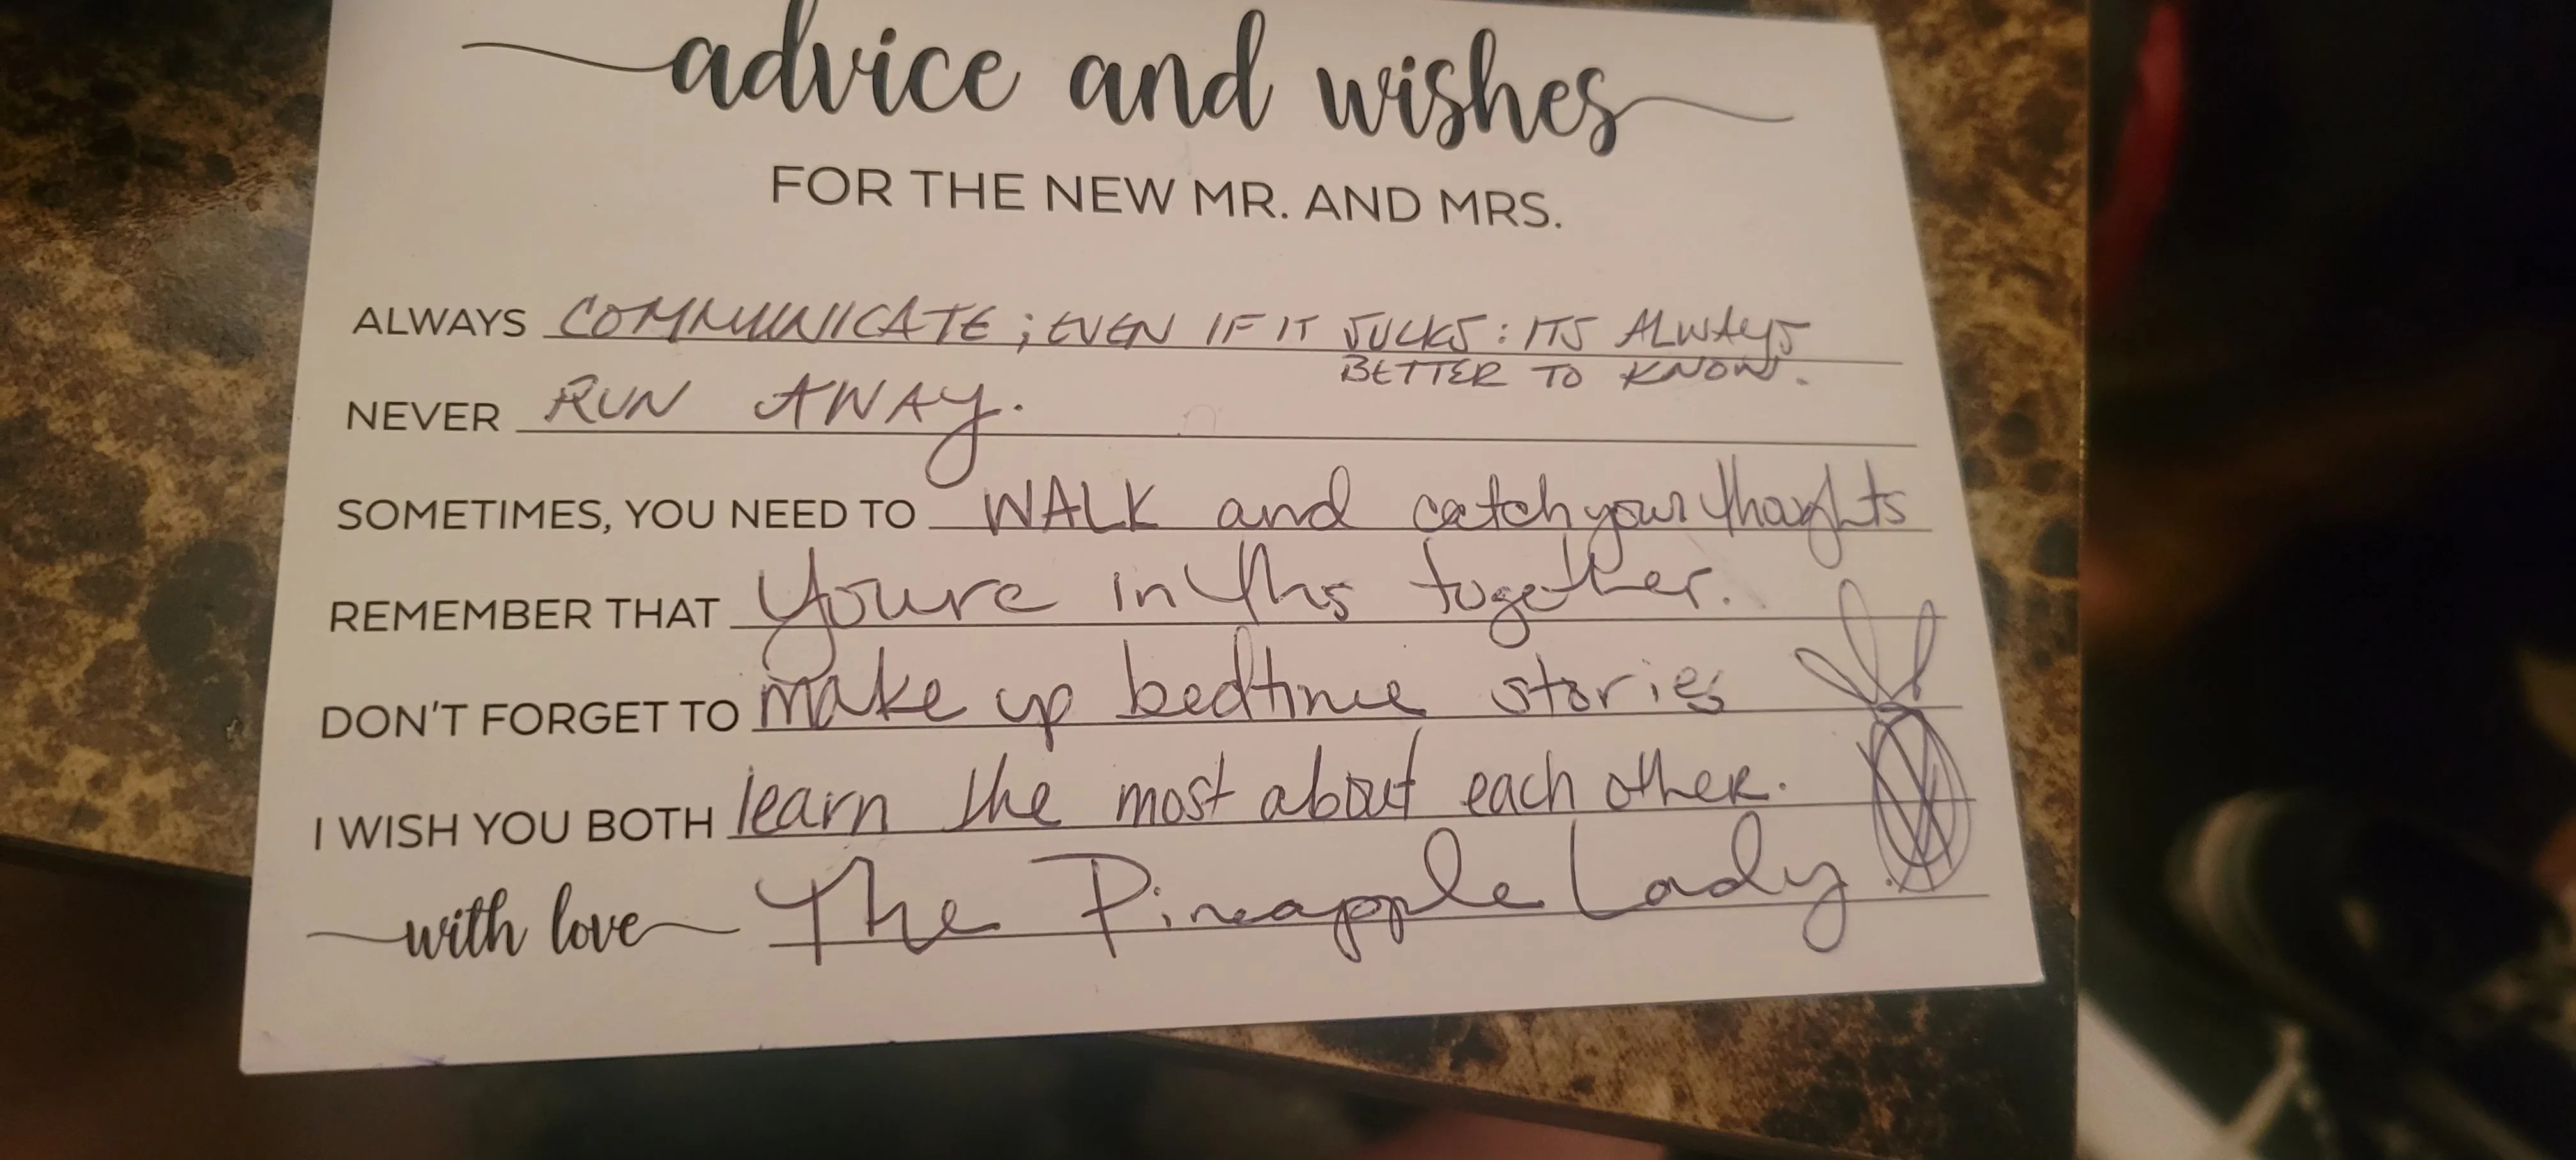 advice and wishes
FOR THE NEW MR. AND MRS.
ALWAYS COMMUNICATE; EVEN IF IT SUCKS: ITS ALWAYS
BETTER TO KNOW.
NEVER RUN AWAY.
SOMETIMES, YOU NEED TO WALK and catch your thoughts
REMEMBER THAT Youre in this together.
DON'T FORGET TO make up bedtime stories
I WISH YOU BOTH learn the most about each other.
with love The Pineapple Lady.